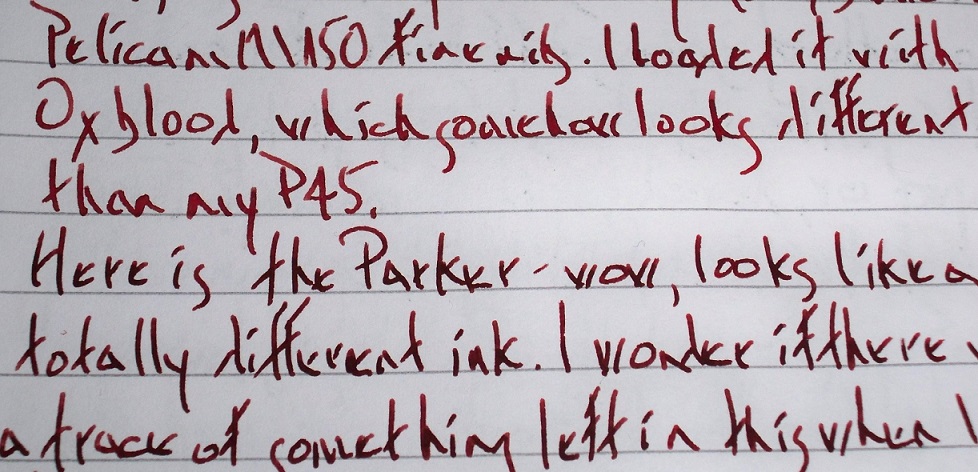 Pelican M150 fine nib. I loaded it with
Oxblood, which somehow looks different
than my P45.
Here is the Parker - wow, looks like a
totally different ink. I wonder if there
a trace of something left in this when I